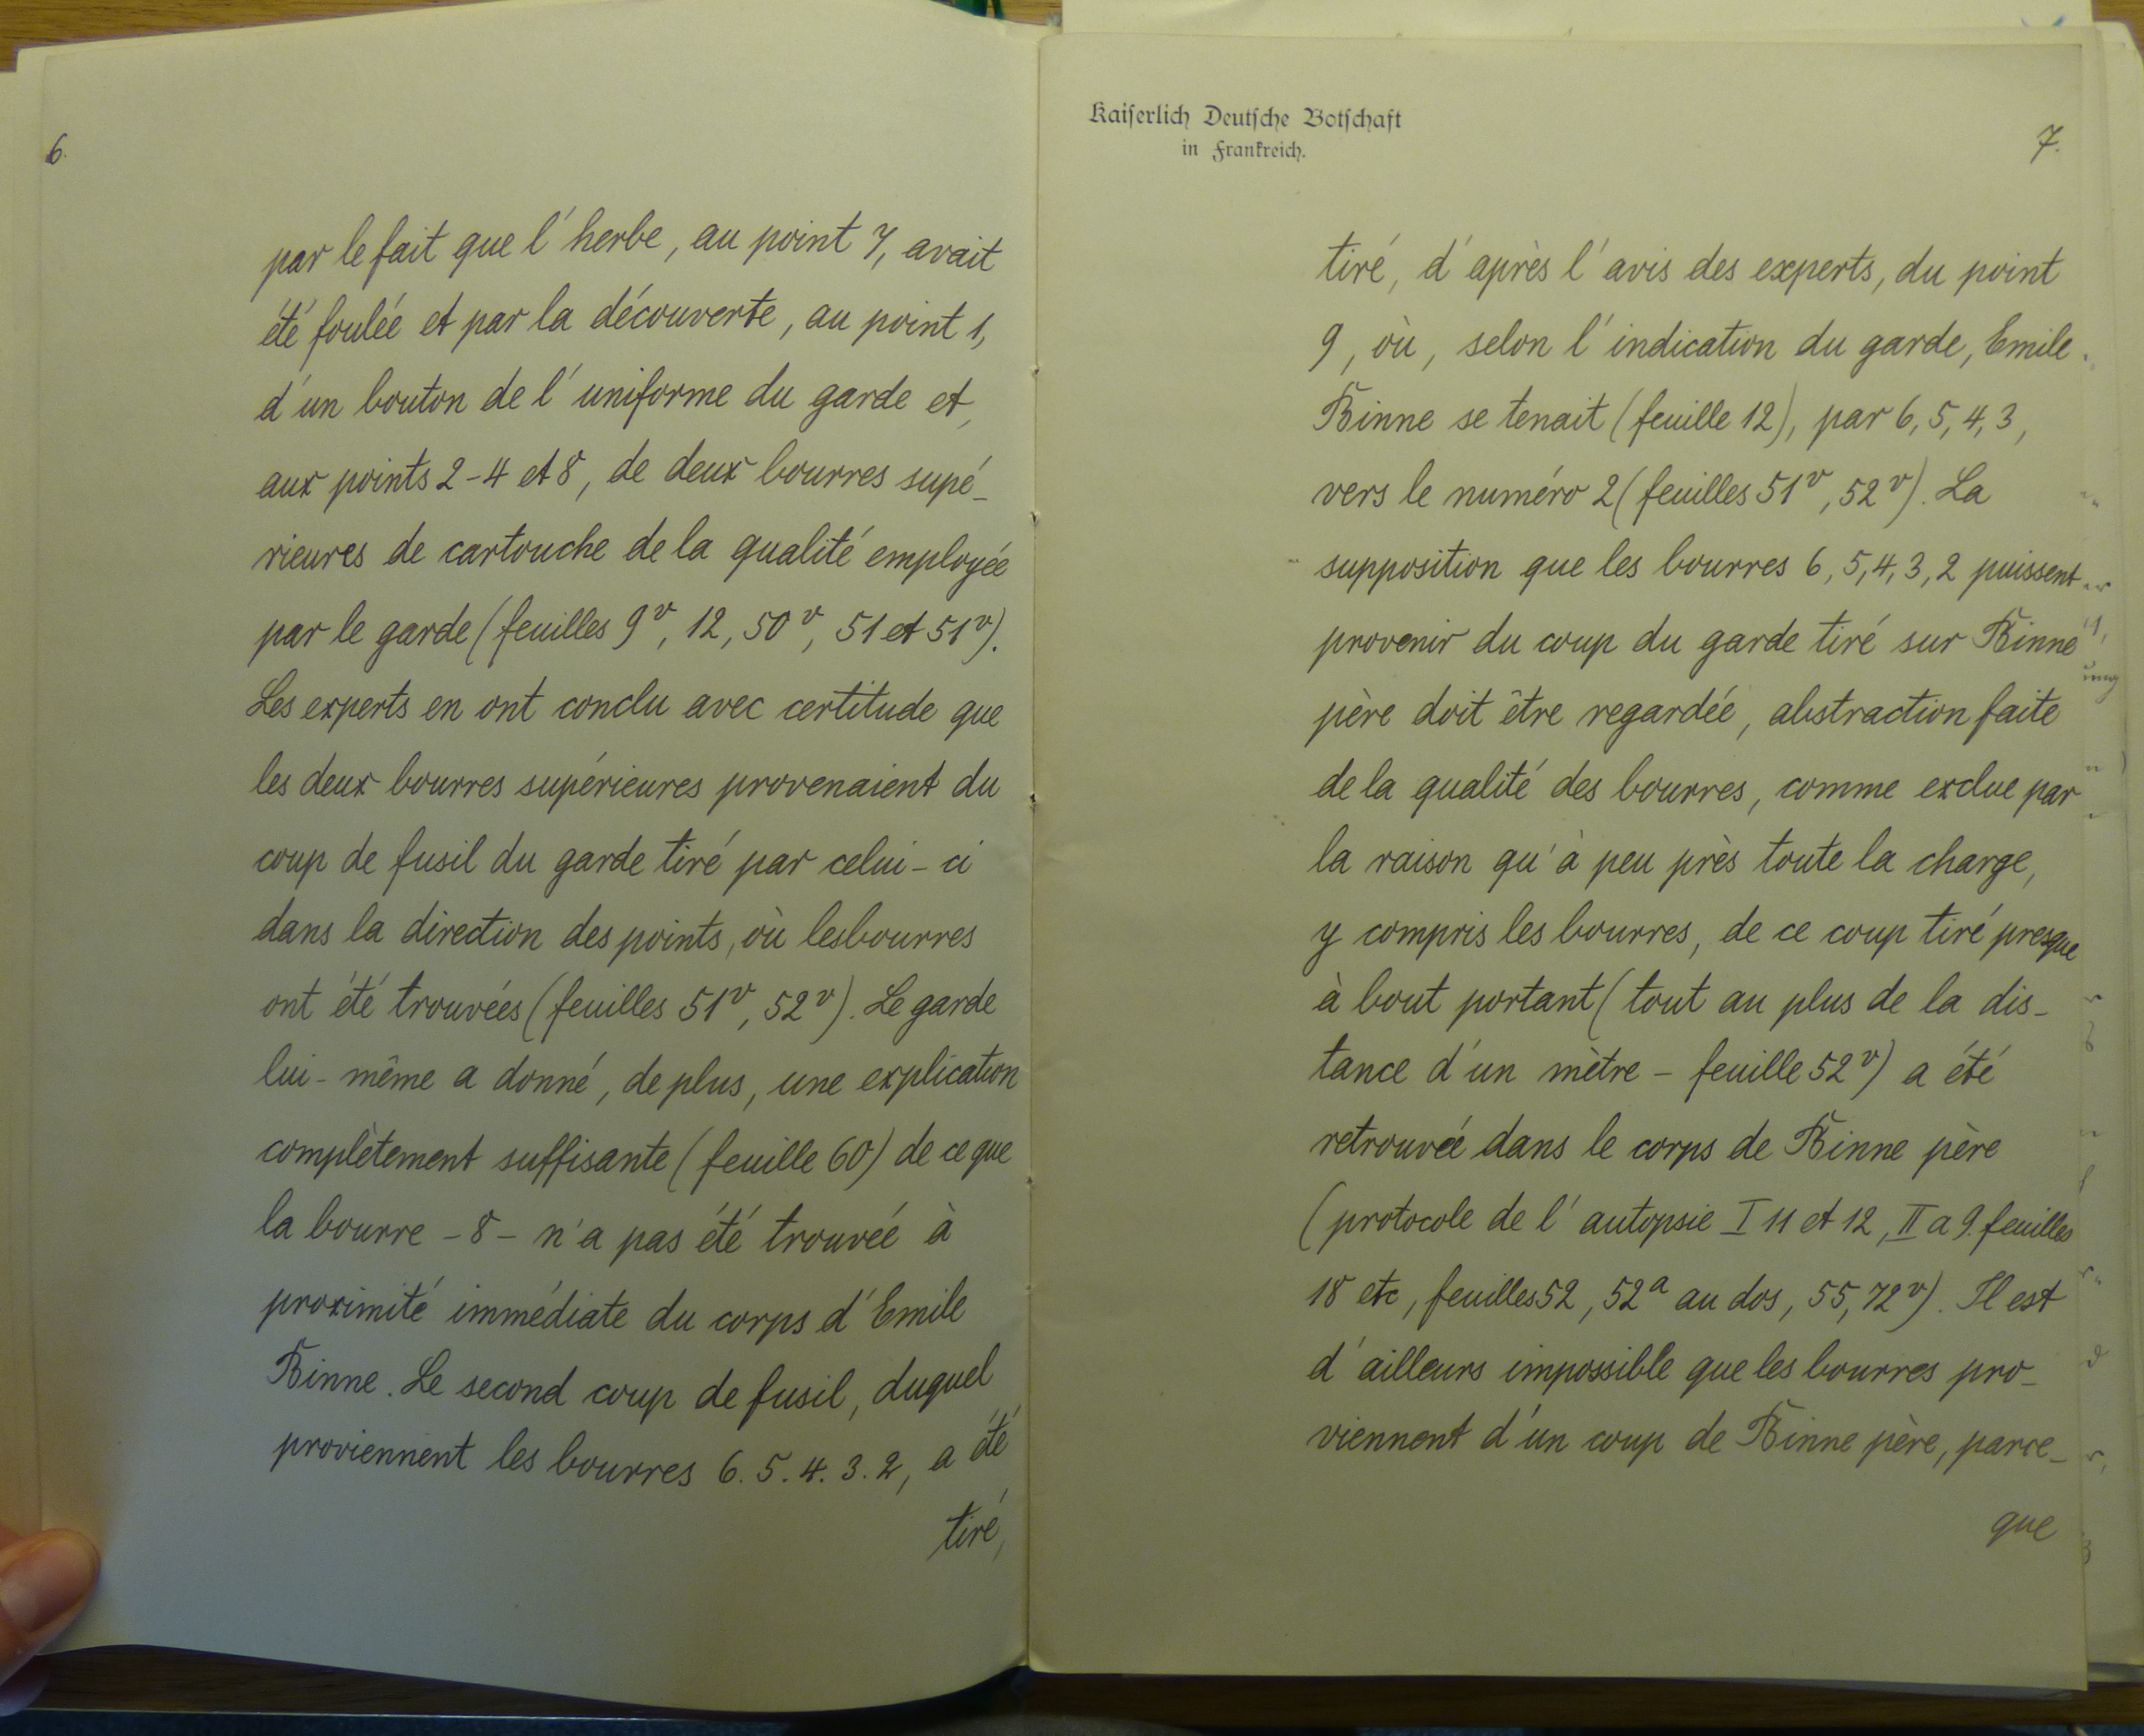 6.
par le fait que l'herbe, au point 7, avait
été foulée et par la découverte, au point 1,
d'un bouton de l'uniforme du garde et,
aux points 2-4 et 8, de deux bourres supé-
rieures de cartouche de la qualité employée
par le garde (feuilles 9v, 12, 50v, 51 et 51v).
Les experts en ont conclu avec certitude que
les deux bourres supérieures provenaient du
coup de fusil du garde tiré par celui-ci
dans la direction des points, où les bourres
ont été trouvées (feuilles 51v, 52v). Le garde
lui-même a donné, de plus, une explication
complètement suffisante (feuille 60) de ce que
la bourre -8- n'a pas été trouvée à
proximité immédiate du corps d'Emile
Binne. Le second coup de fusil, duquel
proviennent les bourres 6. 5. 4. 3. 2, a été
tiré,
Kaiserlich Deutsche Botschaft
in Frankreich.
7.
tiré, d'après l'avis des experts, du point
9, où, selon l'indication du garde, Emile
Binne se tenait (feuille 12), par 6, 5, 4, 3,
vers le numéro 2 (feuilles 51v, 52v). La
supposition que les bourres 6, 5, 4, 3, 2 puissent
provenir du coup du garde tiré sur Binne
père doit être regardée, abstraction faite
de la qualité des bourres, comme exclue par
la raison qu'à peu près toute la charge,
y compris les bourres, de ce coup tiré presque
à bout portant (tout au plus de la dis-
tance d'un mètre - feuille 52v) a été
retrouvée dans le corps de Binne père
(protocole de l'autopsie I 11 et 12, II a 9. feuilles
18 etc, feuilles 52, 52a au dos, 55, 72v). Il est
d'ailleurs impossible que les bourres pro-
viennent d'un coup de Binne père, parce-
que